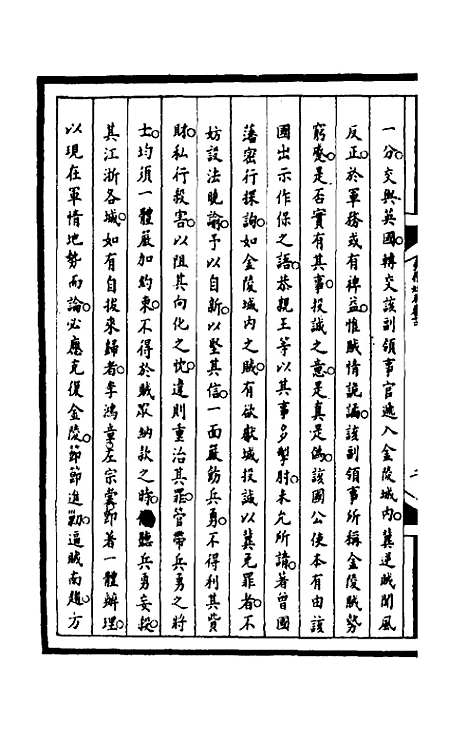 一分交與英國轉交該副領事官遞入金陵城內冀逆賊聞風
反正於軍務或有裨益惟賊情詭譎該副領事所稱金陵賊勢
窮蹙是否實有其事投誠之意是真是偽該國公使本有由該
國出示作保之語恭親王等以其事多掣肘未允所請著曾國
藩密行探詢如金陵城內之賊有欲獻城投誠以冀免罪者不
妨設法曉諭予以自新以堅其信一面嚴飭兵勇不得利其貲
財私行殺害以阻其向化之忱違則重治其罪管帶兵勇之將
士均須一體嚴加約束不得於賊眾納款之時聽兵勇妄殺
其江浙各城如有自拔來歸者李鴻章左宗棠即著一體辦理
以現在軍情地勢而論必應克復金陵節節進勦逼賊南趨方